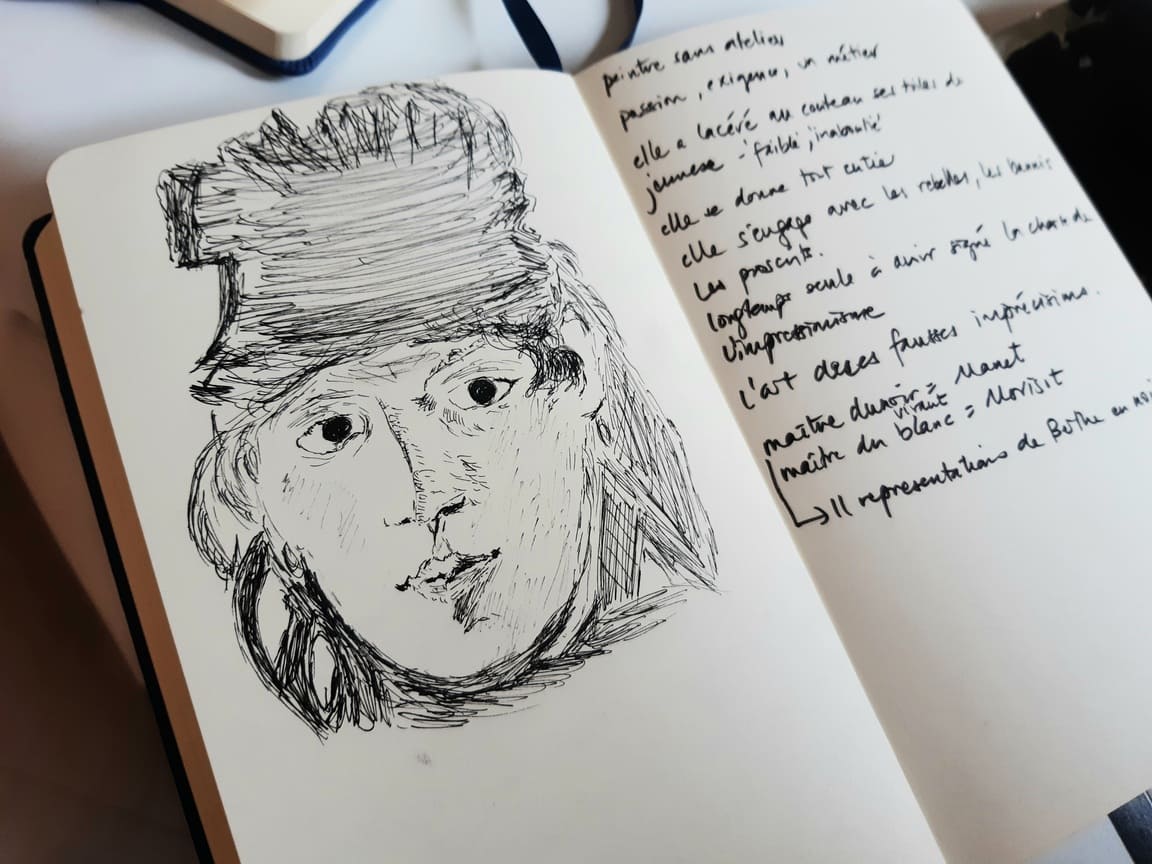 peintre sans atelier
passion, exigence, un métier
elle a lacéré au couteau ses toiles de
jeunesse - 'faible, inabouti'
elle se donne tout entier
elle s'engage avec les rebelles, les bannis
les proscrits.
longtemps seule à avoir signé la charte de
l'impressionisme
l'art de ses fausses imprécisions.
maître du noir = Manet
maître du blanc vivant = Morisot
↳ 11 representations de Berthe en noir